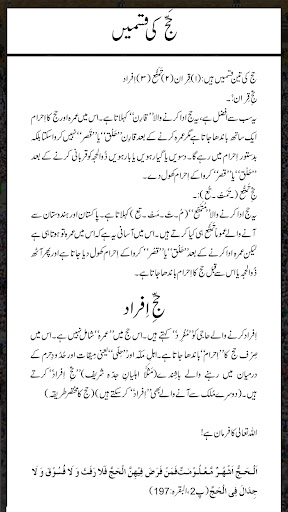 حج کی قسمیں
حج کی تین قسمیں ہیں: (۱) قِران (۲) تَمَتُّع (۳) اِفراد
حجِ قِران:۔
یہ سب سے افضل ہے، یہ حج ادا کرنے والا ”قارِن“ کہلاتا ہے۔ اس میں عمرہ اور حج کا احرام
ایک ساتھ باندھا جاتا ہے مگر عمرہ کرنے کے بعد قارن ”حلق“ یا ”قصر“ نہیں کروا سکتا بلکہ
بدستور احرام میں رہے گا۔ دسویں یا گیارہویں یا بارہویں ذوالحجہ کو قربانی کرنے کے بعد
”حلق“ یا ”قصر“ کروا کے احرام کھول دے۔
حجِ تمتُّع (تَ۔مَتْ۔تُع):۔
یہ حج ادا کرنے والا ”مُتَمَتِّع“ (مُ۔تَ۔مَتْ۔تِع) کہلاتا ہے۔ پاکستان اور ہندوستان سے
آنے والے عموماً تمتع ہی کیا کرتے ہیں۔ اس میں آسانی یہ ہے کہ اس میں عمرہ تو ہوتا ہی ہے
لیکن عمرہ ادا کرنے کے بعد ”حلق“ یا ”قصر“ کروا کے احرام کھول دیا جاتا ہے اور پھر آٹھ
ذوالحجہ یا اس سے قبل حج کا احرام باندھا جاتا ہے۔
حجِّ اِفراد
اِفراد کرنے والے حاجی کو ”مُفرِد“ کہتے ہیں۔ اس حج میں ”عمرہ“ شامل نہیں ہے۔ اس میں
صِرف حج کا ”احرام“ باندھا جاتا ہے۔ اہلِ مکہ اور ”حِلّی“ یعنی میقات اور حدودِ حرم کے
درمیان میں رہنے والے باشندے (مثلاً اہلیانِ جدّہ شریف) ”حجِ اِفراد“ کرتے
ہیں۔ (دوسرے ملک سے آنے والے بھی ”اِفراد“ کر سکتے ہیں) (حج کا مختصر طریقہ)
اللہ تعالیٰ کا فرمان ہے!
اَلْحَجُّ اَشْهُرٌ مَّعْلُوْمٰتٌ فَمَنْ فَرَضَ فِيْهِنَّ الْحَجَّ فَلَا رَفَثَ وَ لَا فُسُوْقَ وَ لَا
جِدَالَ فِی الْحَجِّ (پ2، البقرہ:197)